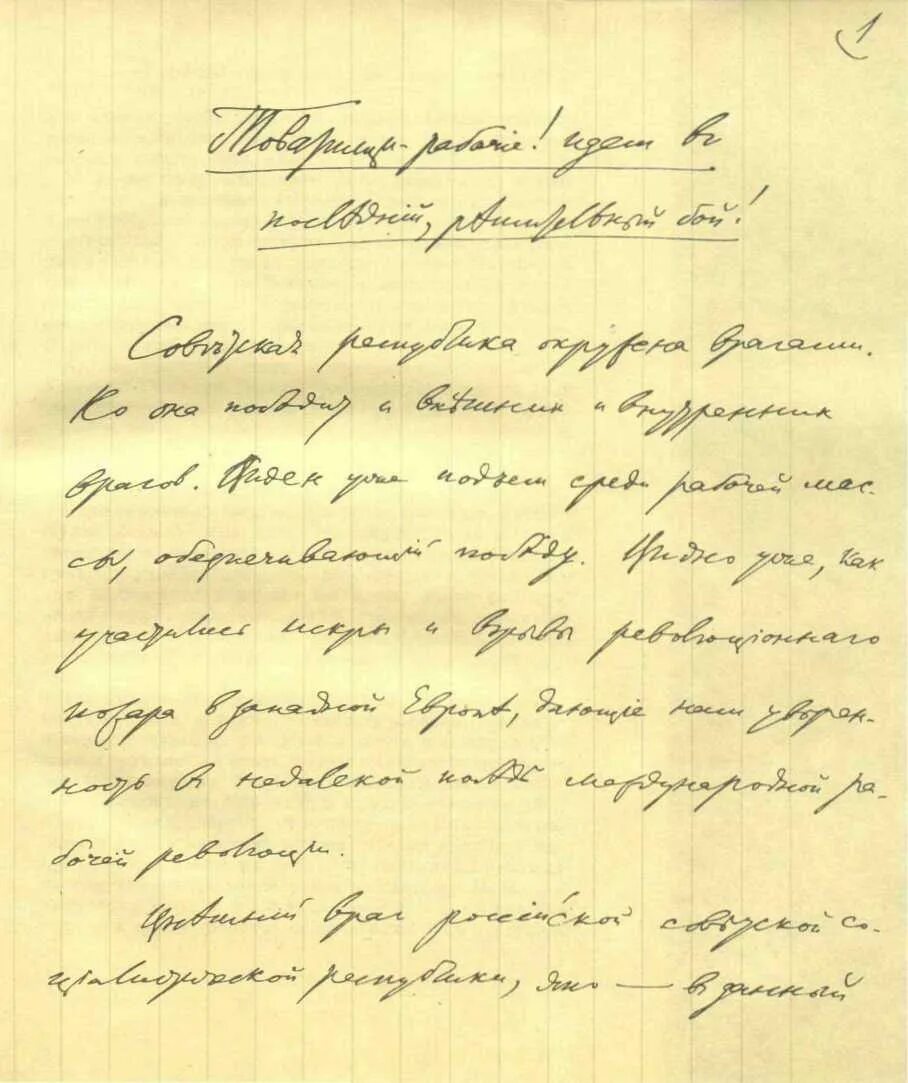 1
Товарищи-рабочіе! идем в
послѣдній, рѣшительный бой!
Совѣтская республика окружена врагами.
Но она побѣдит и внѣшних и внутренних
врагов. Виден уже подъем среди рабочей мас-
сы, обеспечивающий побѣду. Видно уже, как
участились искры и взрывы революціоннаго
пожара в западной Европѣ, дающіе нам увѣрен-
ность в недалекой побѣдѣ международной ра-
бочей революціи.
Внѣшній враг россійской совѣтской со-
ціалистической республики, это — в данный